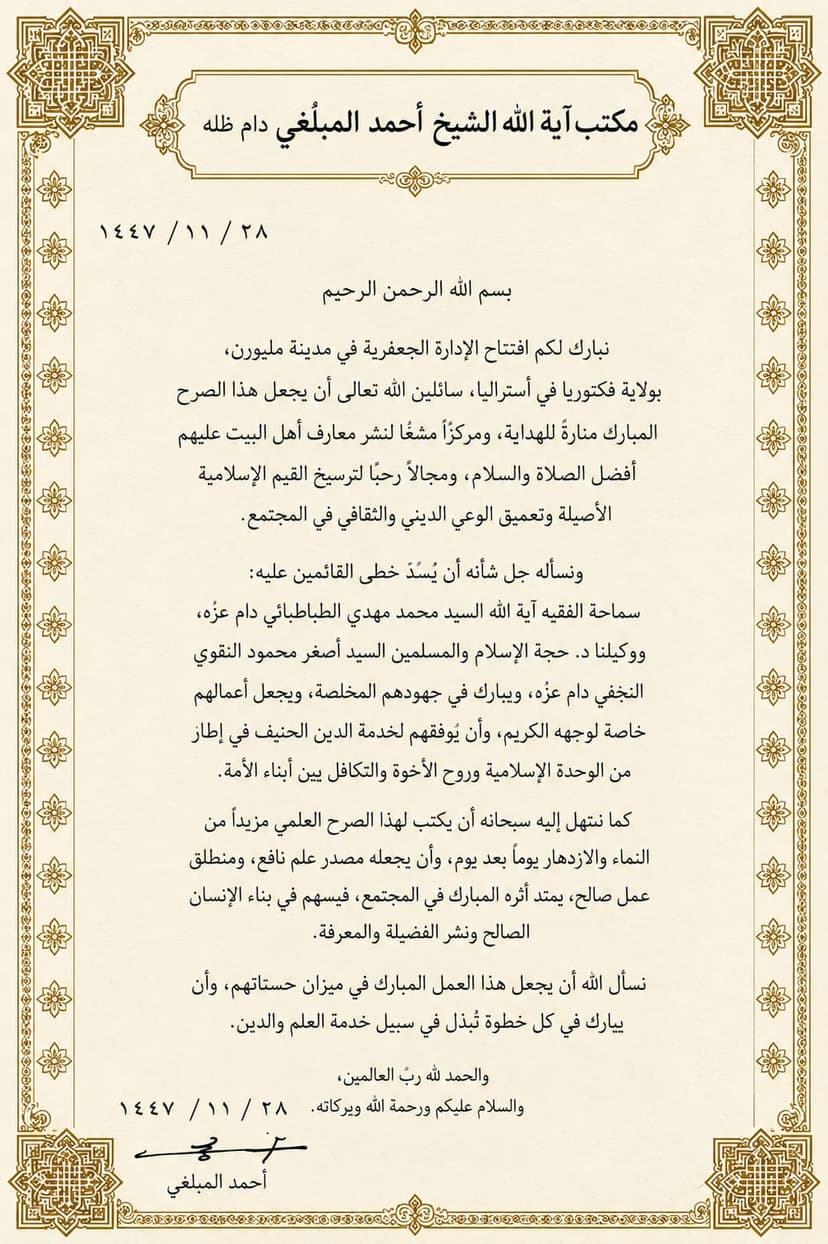 مكتب آية الله الشيخ أحمد المبلُغي دام ظله
٢٨ / ١١ / ١٤٤٧
بسم الله الرحمن الرحيم
نبارك لكم افتتاح الإدارة الجعفرية في مدينة مليورن،
بولاية فكتوريا في أستراليا، سائلين الله تعالى أن يجعل هذا الصرح
المبارك منارةً للهداية، ومركزًاً مشعًا لنشر معارف أهل البيت عليهم
أفضل الصلاة والسلام، ومجالاً رحبًا لترسيخ القيم الإسلامية
الأصيلة وتعميق الوعي الديني والثقافي في المجتمع.
ونسأله جل شأنه أن يُسدّدَ خطى القائمين عليه:
سماحة الفقيه آية الله السيد محمد مهدي الطباطبائي دام عزُه،
ووكيلنا د. حجة الإسلام والمسلمين السيد أصغر محمود النقوي
النجفي دام عزُه، ويبارك في جهودهم المخلصة، ويجعل أعمالهم
خاصة لوجهه الكريم، وأن يُوفقهم لخدمة الدين الحنيف في إطاز
من الوحدة الإسلامية وروح الأخوة والتكافل يين أبناء الأمة.
كما نبتهل إليه سبحانه أن يكتب لهذا الصرح العلمي مزيداً من
النماء والازدهار يوماً بعد يوم، وأن يجعله مصدر علم نافع، ومنطلق
عمل صالح، يمتد أثره المبارك في المجتمع، فيسهم في بناء الإنسان
الصالح ونشر الفضيلة والمعرفة.
نسأل الله أن يجعل هذا العمل المبارك في ميزان حستاتهم، وأن
ييارك في كل خطوة تُبذل في سبيل خدمة العلم والدين.
والحمد لله ربّ العالمين،
والسلام عليكم ورحمة الله ويركاته.
٢٨ / ١١ / ١٤٤٧
أحمد المبلغي